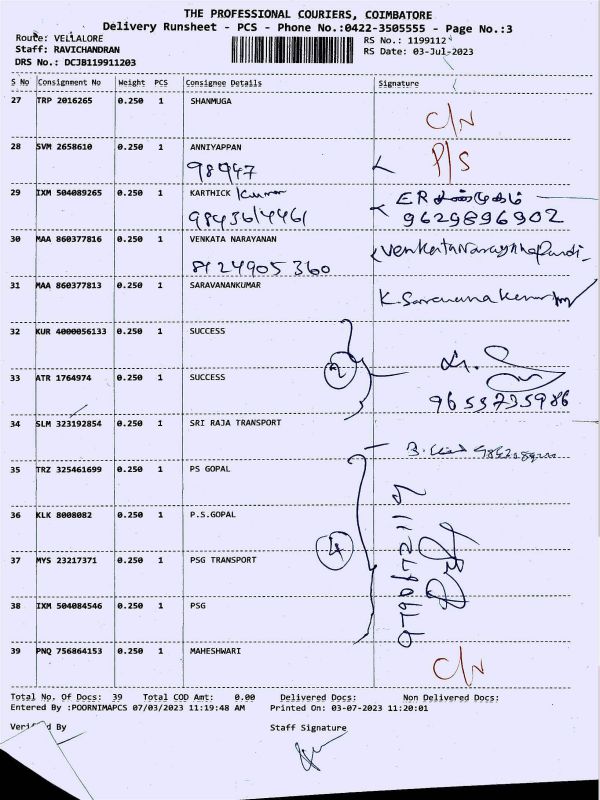 THE PROFESSIONAL COURIERS, COIMBATORE
Delivery Runsheet - PCS - Phone No.:0422-3505555 - Page No.:3
Route: VELLALORE
RS No.: 1199112
Staff: RAVICHANDRAN
RS Date: 03-Jul-2023
DRS No.: DCJB119911203
S No Consignment No Weight PCS Consignee Details Signature
27 TRP 2016265 0.250 1 SHANMUGA
C/N
28 SVM 2658610 0.250 1 ANNIYAPPAN
P/S
98947
29 IXM 504089265 0.250 1 KARTHICK Kumar
ER
9843614461 9629896902
30 MAA 860377816 0.250 1 VENKATA NARAYANAN
8124905360
31 MAA 860377813 0.250 1 SARAVANANKUMAR
K. Saravana Kumar
32 KUR 4000056133 0.250 1 SUCCESS
2
33 ATR 1764974 0.250 1 SUCCESS
9655735986
34 SLM 323192854 0.250 1 SRI RAJA TRANSPORT
35 TRZ 325461699 0.250 1 PS GOPAL
36 KLK 8008082 0.250 1 P.S.GOPAL
4
37 MYS 23217371 0.250 1 PSG TRANSPORT
38 IXM 504084546 0.250 1 PSG
39 PNQ 756864153 0.250 1 MAHESHWARI
C/N
Total No. Of Docs: 39 Total COD Amt: 0.00 Delivered Docs: Non Delivered Docs:
Entered By :POORNIMAPCS 07/03/2023 11:19:48 AM Printed On: 03-07-2023 11:20:01
By Staff Signature